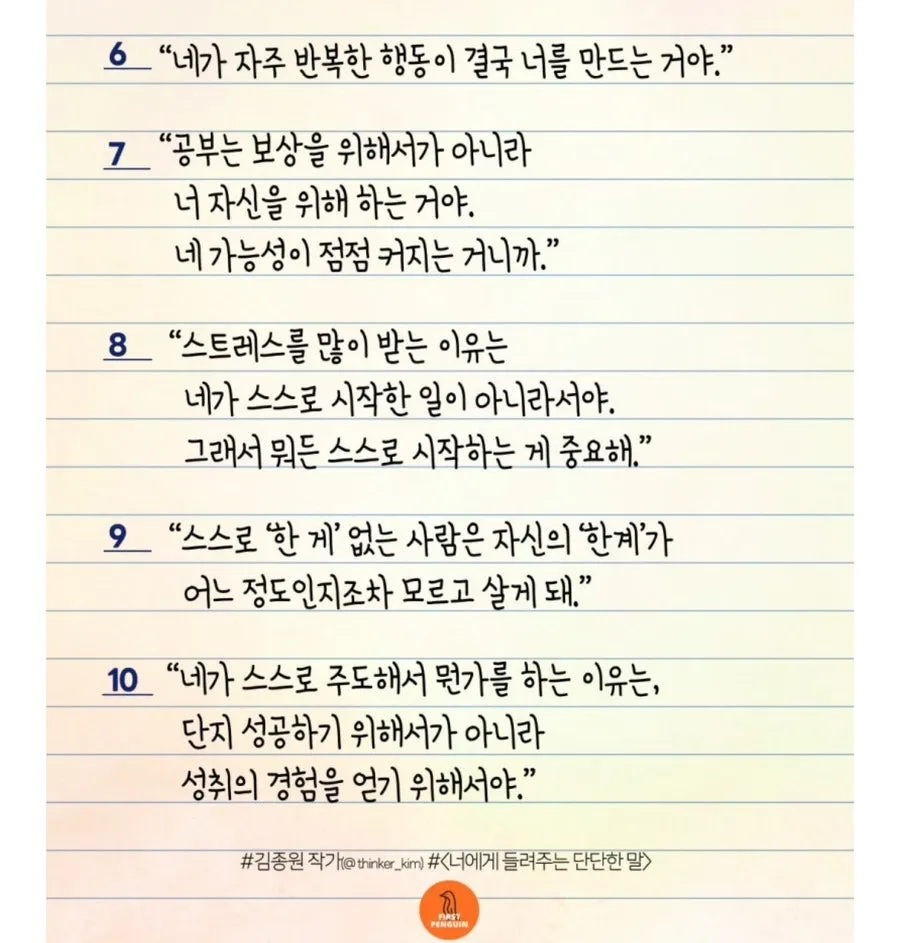 6 “네가 자주 반복한 행동이 결국 너를 만드는 거야.”
7 “공부는 보상을 위해서가 아니라
너 자신을 위해 하는 거야.
네 가능성이 점점 커지는 거니까.”
8 “스트레스를 많이 받는 이유는
네가 스스로 시작한 일이 아니라서야.
그래서 뭐든 스스로 시작하는 게 중요해.”
9 “스스로 ‘한 게’ 없는 사람은 자신의 ‘한계’가
어느 정도인지조차 모르고 살게 돼.”
10 “네가 스스로 주도해서 뭔가를 하는 이유는,
단지 성공하기 위해서가 아니라
성취의 경험을 얻기 위해서야.”
#김종원 작가(@thinker_kim) #<너에게 들려주는 단단한 말>
FIRST
PENGUIN